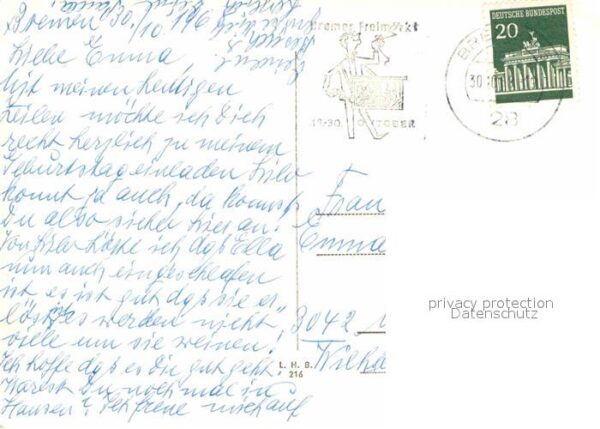 Bremen 30./10. 196
Liebe Emma,
Mit meinen heutigen
Zeilen möchte ich Dich
recht herzlich zu meinem
Geburtstag einladen
kommt ja auch, da kommst
Du also sicher hier an!
Von hörte ich daß Ella
nun auch eingeschlafen
ist, es ist gut daß sie er-
löst, es werden nicht
viele um sie weinen!
Ich hoffe daß es Dir gut geht
Warest Du noch mal in
Hausen? Ich freue mich auf
Bremer Freimarkt
-30. OKTOBER
DEUTSCHE BUNDESPOST
20
BRE
30
28
Frau
Emma
3042
L. H. B.
216
privacy protection
Datenschutz